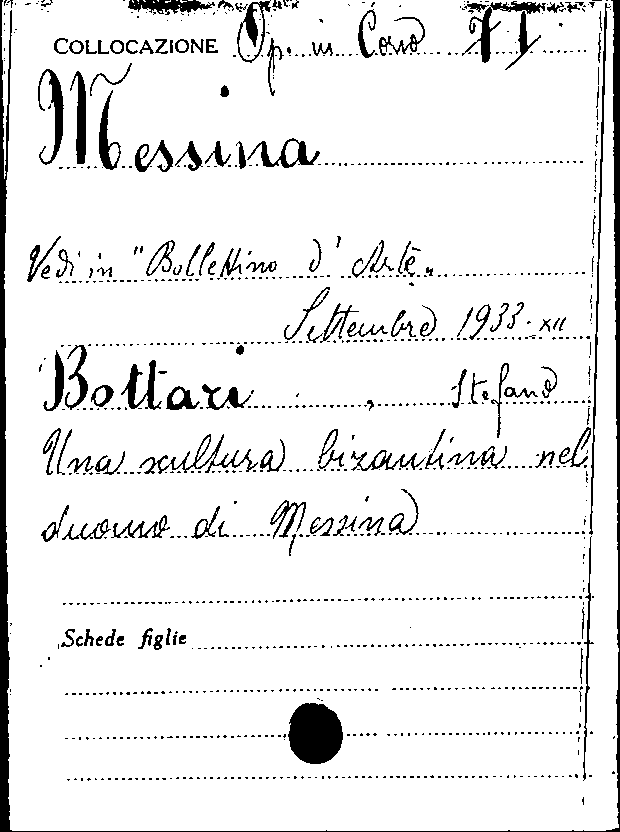 COLLOCAZIONE Op. in Corso 71
Messina
Vedi in "Bollettino d'Arte„
Settembre 1933-XII
Bottari, Stefano
Una scultura bizantina nel
duomo di Messina
Schede figlie